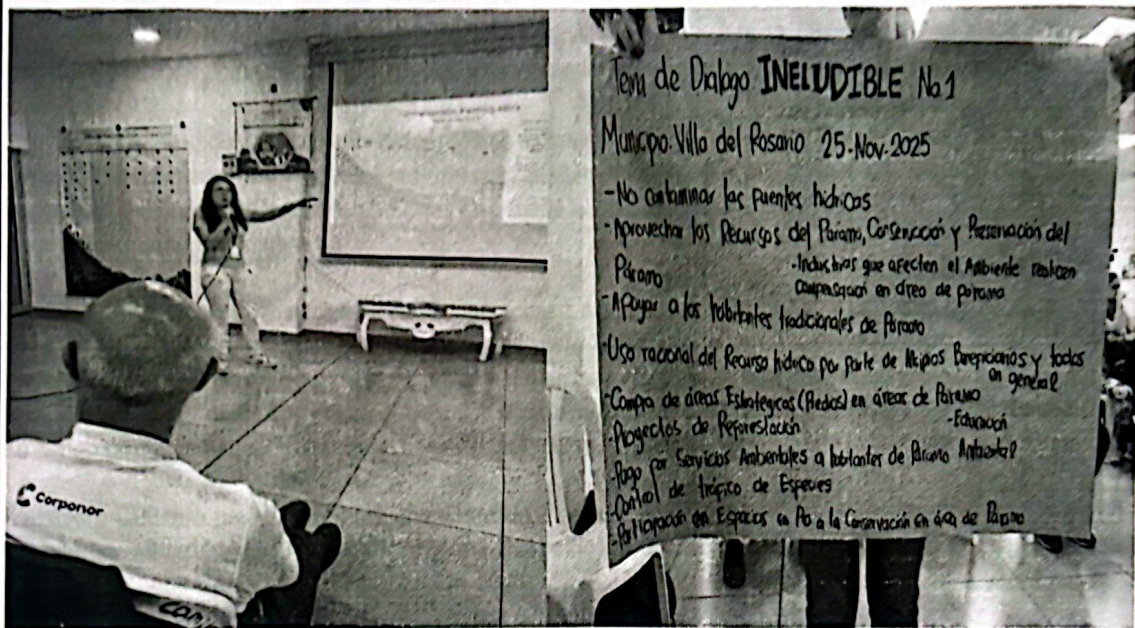 Corponor
Tema de Dialogo INELUDIBLE No.1
Municpo. Villa del Rosario 25-Nov-2025
-No contaminar las fuentes hidricas
-Aprovechar los Recursos del Páramo, Conservación y Preservación del
Páramo
-Industrias que afecten el Ambiente realicen
compensación en área de páramo
-Apoyar a los habitantes tradicionales de Páramo
-Uso racional del Recurso hidrico por parte de Mcipos y todos
en general
-Compra de áreas Estratégicas (Predios) en áreas de Páramo
-Proyectos de Reforestación
-Educación
-Pago por Servicios Ambientales a habitantes de Páramo Ambiental
-Control de tráfico de Especies
-Participación en Espacios en Pro a la Conservación en área de Páramo